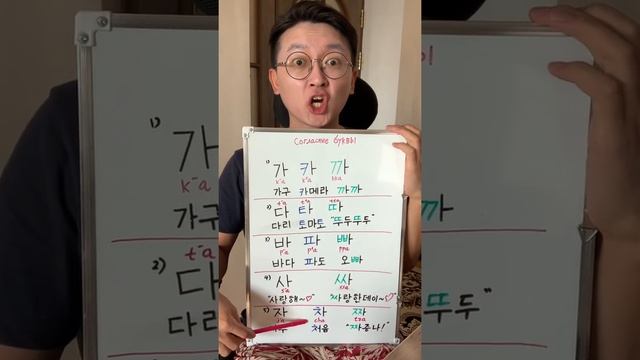 Согласные буквы
1) 가 카 까
k-a kʰa kka
가구 카메라 까까
t-a tʰa tta
2) 다 타 따
다리 토마토 "뚜두뚜두"
3) 바 파 빠
p-a pʰa ppa
바다 파도 오빠
4) 사 싸
sa ssa
"사랑해~♡" "싸랑한데이~♡"
5) 자 차 짜
cha tza
처음 "짜증나!"